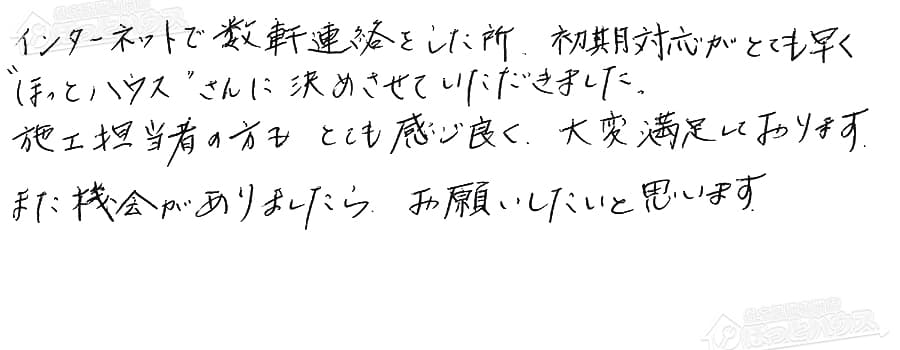 インターネットで数軒連絡をした所、初期対応がとても早く
"ほっとハウス"さんに決めさせていただきました。
施工担当者の方も とても感じ良く、大変満足しております。
また機会がありましたら、お願いしたいと思います。
ほっとハウス